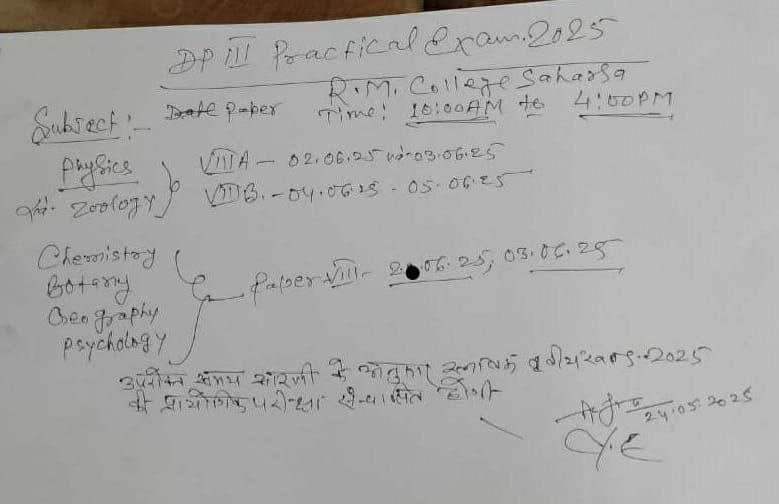 DP III Practical Exam. 2025
R.M. College Saharsa
Subject:- Date Paper Time: 10:00AM to 4:00PM
Physics VIII A - 02.06.25 एवं 03.06.25
एवं Zoology VIII B. - 04.06.25 - 05.06.25
Chemistry
Botany
Geography
Psychology
Paper-VIII - 2.06.25, 03.06.25
उपरोक्त समय सारणी के अनुसार स्नातक तृतीय खण्ड-2025
की प्रायोगिक परीक्षा संचालित होगी
24.05.2025
C.E